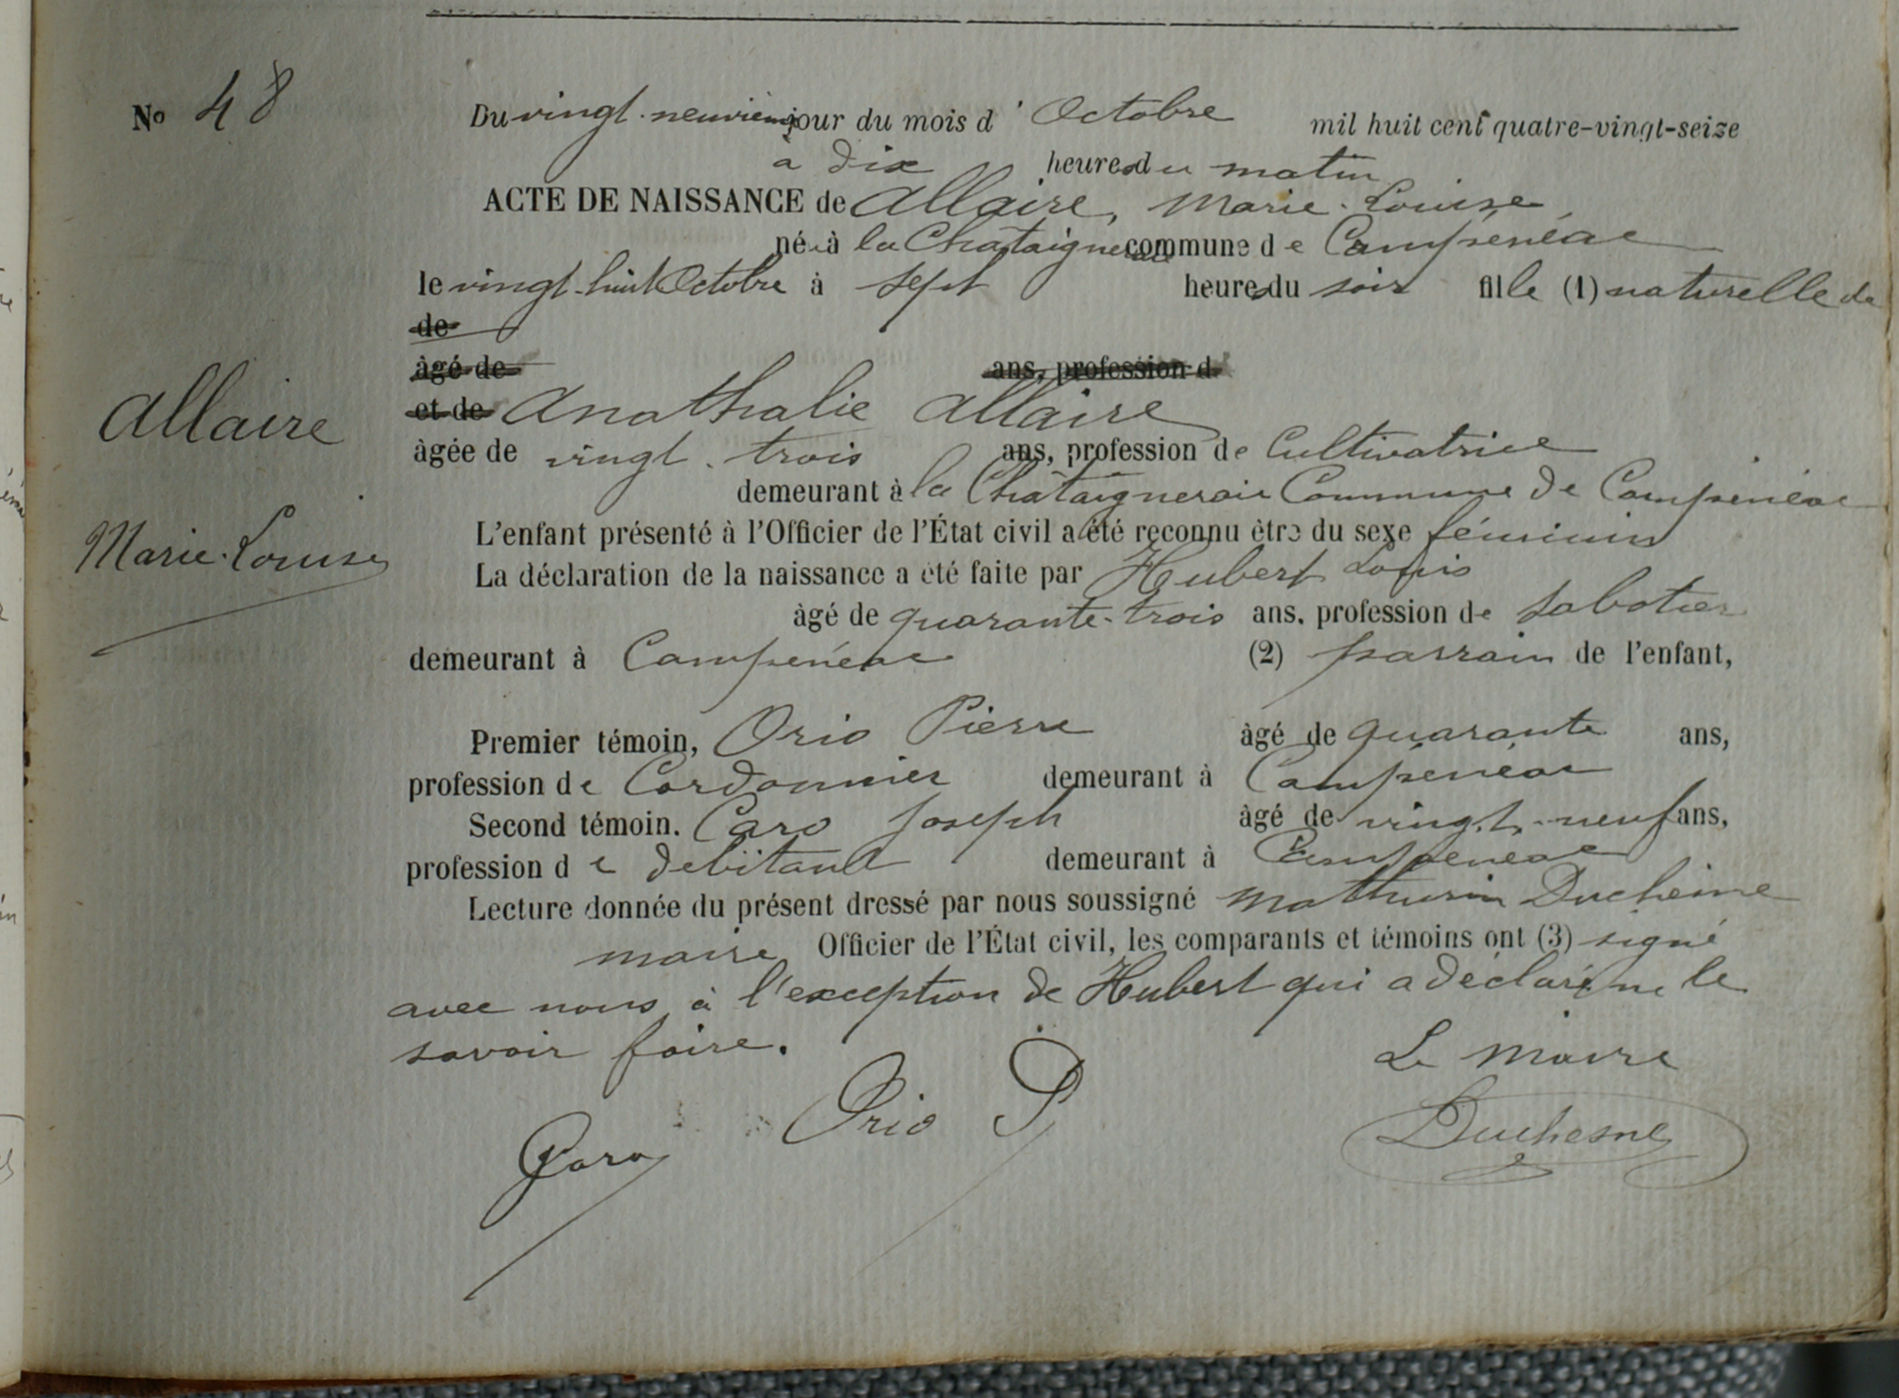 No 48
Du vingt-neuvième jour du mois d'Octobre mil huit cent quatre-vingt-seize
à dix heures du matin
ACTE DE NAISSANCE de Allaire, Marie-Louise,
née à la Chataigneraie commune de Campénéac
le vingt-huit Octobre à sept heures du soir fille (1) naturelle de
de
âgé de ans, profession d
et de Anathalie Allaire
âgée de vingt-trois ans, profession de Cultivatrice
demeurant à la Chataigneraie Commune de Campénéac
L'enfant présenté à l'Officier de l'État civil a été reconnu être du sexe féminin
La déclaration de la naissance a été faite par Hubert Louis
âgé de quarante-trois ans, profession de sabotier
demeurant à Campénéac (2) parrain de l'enfant,
Premier témoin, Orio Pierre âgé de quarante ans,
profession de Cordonnier demeurant à Campénéac
Second témoin. Caro Joseph âgé de vingt-neuf ans,
profession de debitant demeurant à Campénéac
Lecture donnée du présent dressé par nous soussigné Mathurin Duchesne
maire Officier de l'État civil, les comparants et témoins ont (3) signé
avec nous à l'exception de Hubert qui a déclaré ne le
savoir faire.
Le Maire
Caro Orio P Duchesne
Allaire
Marie-Louise